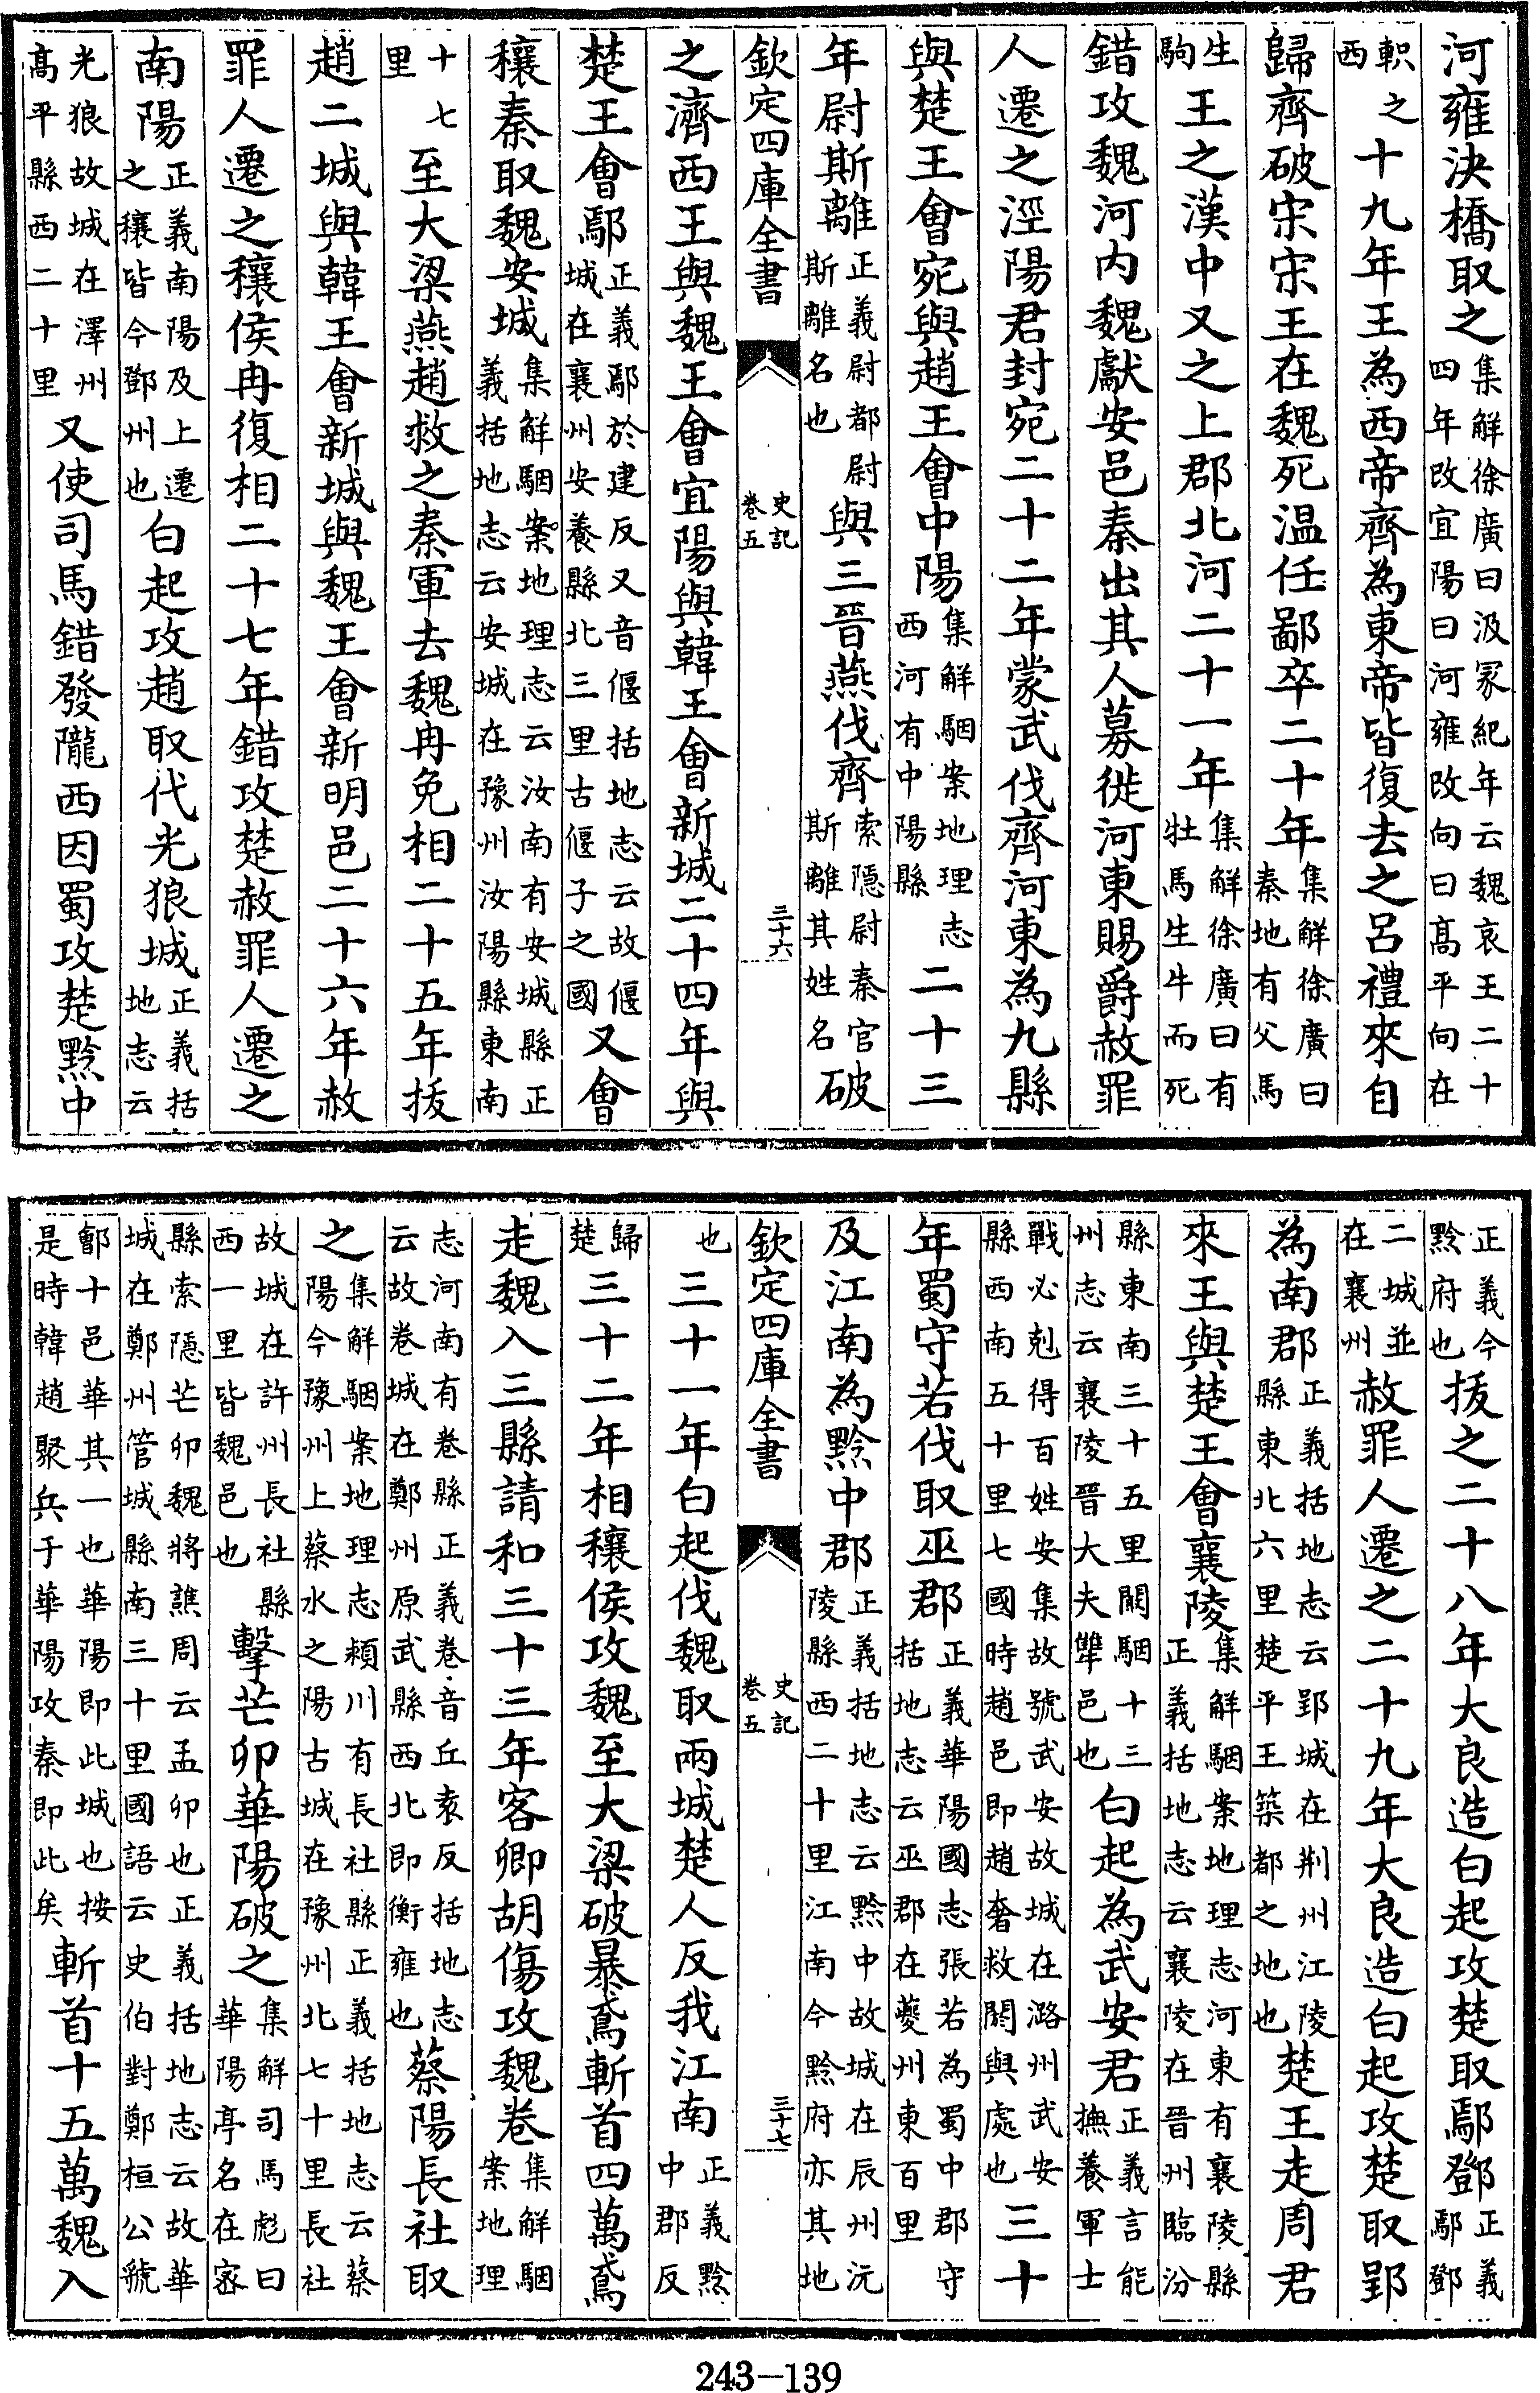 河雍決橋取之集解徐廣曰汲冢紀年云魏哀王二十四年改宜陽曰河雍改向曰高平向在
軹之西十九年王為西帝齊為東帝皆復去之呂禮來自
歸齊破宋宋王在魏死温任鄙卒二十年集解徐廣曰秦地有父馬
生駒王之漢中又之上郡北河二十一年集解徐廣曰有牡馬生牛而死
錯攻魏河内魏獻安邑秦出其人募徙河東賜爵赦罪
人遷之涇陽君封宛二十二年蒙武伐齊河東為九縣
與楚王會宛與趙王會中陽集解駰案地理志西河有中陽縣二十三
年尉斯離正義尉都尉斯離名也與三晉燕伐齊索隱尉秦官斯離其姓名破
欽定四庫全書
史記
卷五
三十六
之濟西王與魏王會宜陽與韓王會新城二十四年與
楚王會鄢正義鄢於建反又音偃括地志云故偃城在襄州安養縣北三里古偃子之國又會
穰秦取魏安城集解駰案地理志云汝南有安城縣正義括地志云安城在豫州汝陽縣東南
十七里至大梁燕趙救之秦軍去魏冉免相二十五年拔
趙二城與韓王會新城與魏王會新明邑二十六年赦
罪人遷之穰侯冉復相二十七年錯攻楚赦罪人遷之
南陽正義南陽及上遷之穰皆今鄧州也白起攻趙取代光狼城正義括地志云
光狼故城在澤州高平縣西二十里又使司馬錯發隴西因蜀攻楚黔中
正義今黔府也拔之二十八年大良造白起攻楚取鄢鄧正義鄢鄧
二城並在襄州赦罪人遷之二十九年大良造白起攻楚取郢
為南郡正義括地志云郢城在荆州江陵縣東北六里楚平王築都之地也楚王走周君
來王與楚王會襄陵集解駰案地理志河東有襄陵縣正義括地志云襄陵在晉州臨汾
縣東南三十五里闞駰十三州志云襄陵晉大夫犨邑也白起為武安君正義言能撫養軍士
戰必剋得百姓安集故號武安故城在潞州武安縣西南五十里七國時趙邑即趙奢救閼與處也三十
年蜀守若伐取巫郡正義華陽國志張若為蜀中郡守括地志云巫郡在夔州東百里
及江南為黔中郡正義括地志云黔中故城在辰州沅陵縣西二十里江南今黔府亦其地
欽定四庫全書
史記
卷五
三十七
也三十一年白起伐魏取兩城楚人反我江南正義黔中郡反
歸楚三十二年相穰侯攻魏至大梁破暴鳶斬首四萬鳶
走魏入三縣請和三十三年客卿胡傷攻魏卷集解駰案地理
志河南有卷縣正義卷音丘袁反括地志云故卷城在鄭州原武縣西北即衡雍也蔡陽長社取
之集解駰案地理志潁川有長社縣正義括地志云蔡陽今豫州上蔡水之陽古城在豫州北七十里長社
故城在許州長社縣西一里皆魏邑也擊芒卯華陽破之集解司馬彪曰華陽亭名在密
縣索隱芒卯魏將譙周云孟卯也正義括地志云故華城在鄭州管城縣南三十里國語云史伯對鄭桓公虢
鄶十邑華其一也華陽即此城也按是時韓趙聚兵于華陽攻秦即此矣斬首十五萬魏入
243—139